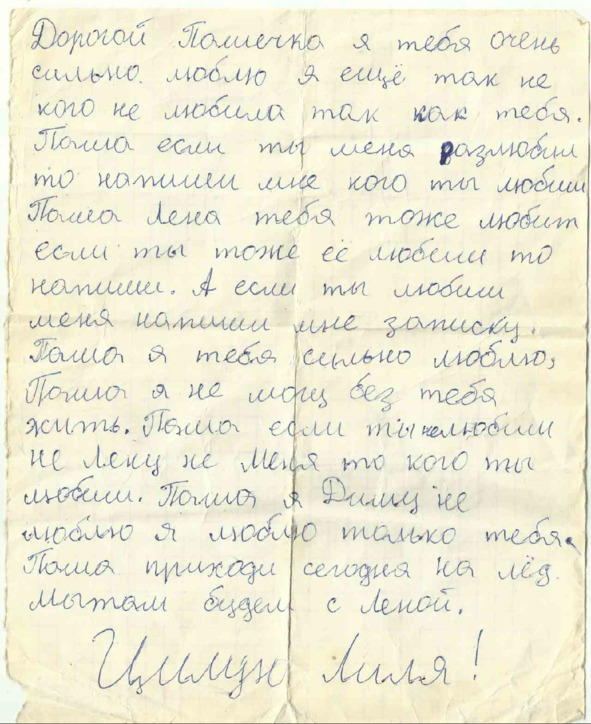 Дорогой Пашечка я тебя очень
сильно люблю я ещё так не
кого не любила так как тебя.
Паша если ты меня разлюбил
то напиши мне кого ты любиш
Паша Лена тебя тоже любит
если ты тоже её любиш то
напиши. А если ты любиш
меня напиши мне записку.
Паша я тебя сильно люблю,
Паша я не могу без тебя
жить. Паша если ты не любиш
не Лену не меня то кого ты
любиш. Паша я Диму не
люблю я люблю только тебя.
Паша приходи сегодня на лёд.
мы там будем с Леной.
Лиля!